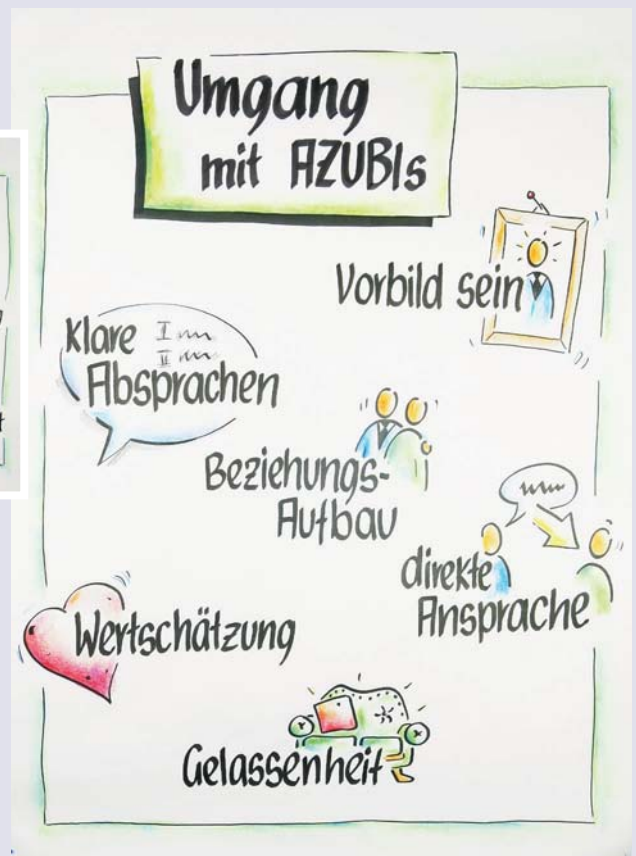 Umgang
mit AZUBIs
Vorbild sein
Klare
Absprachen
Beziehungs-
Aufbau
direkte
Ansprache
Wertschätzung
Gelassenheit